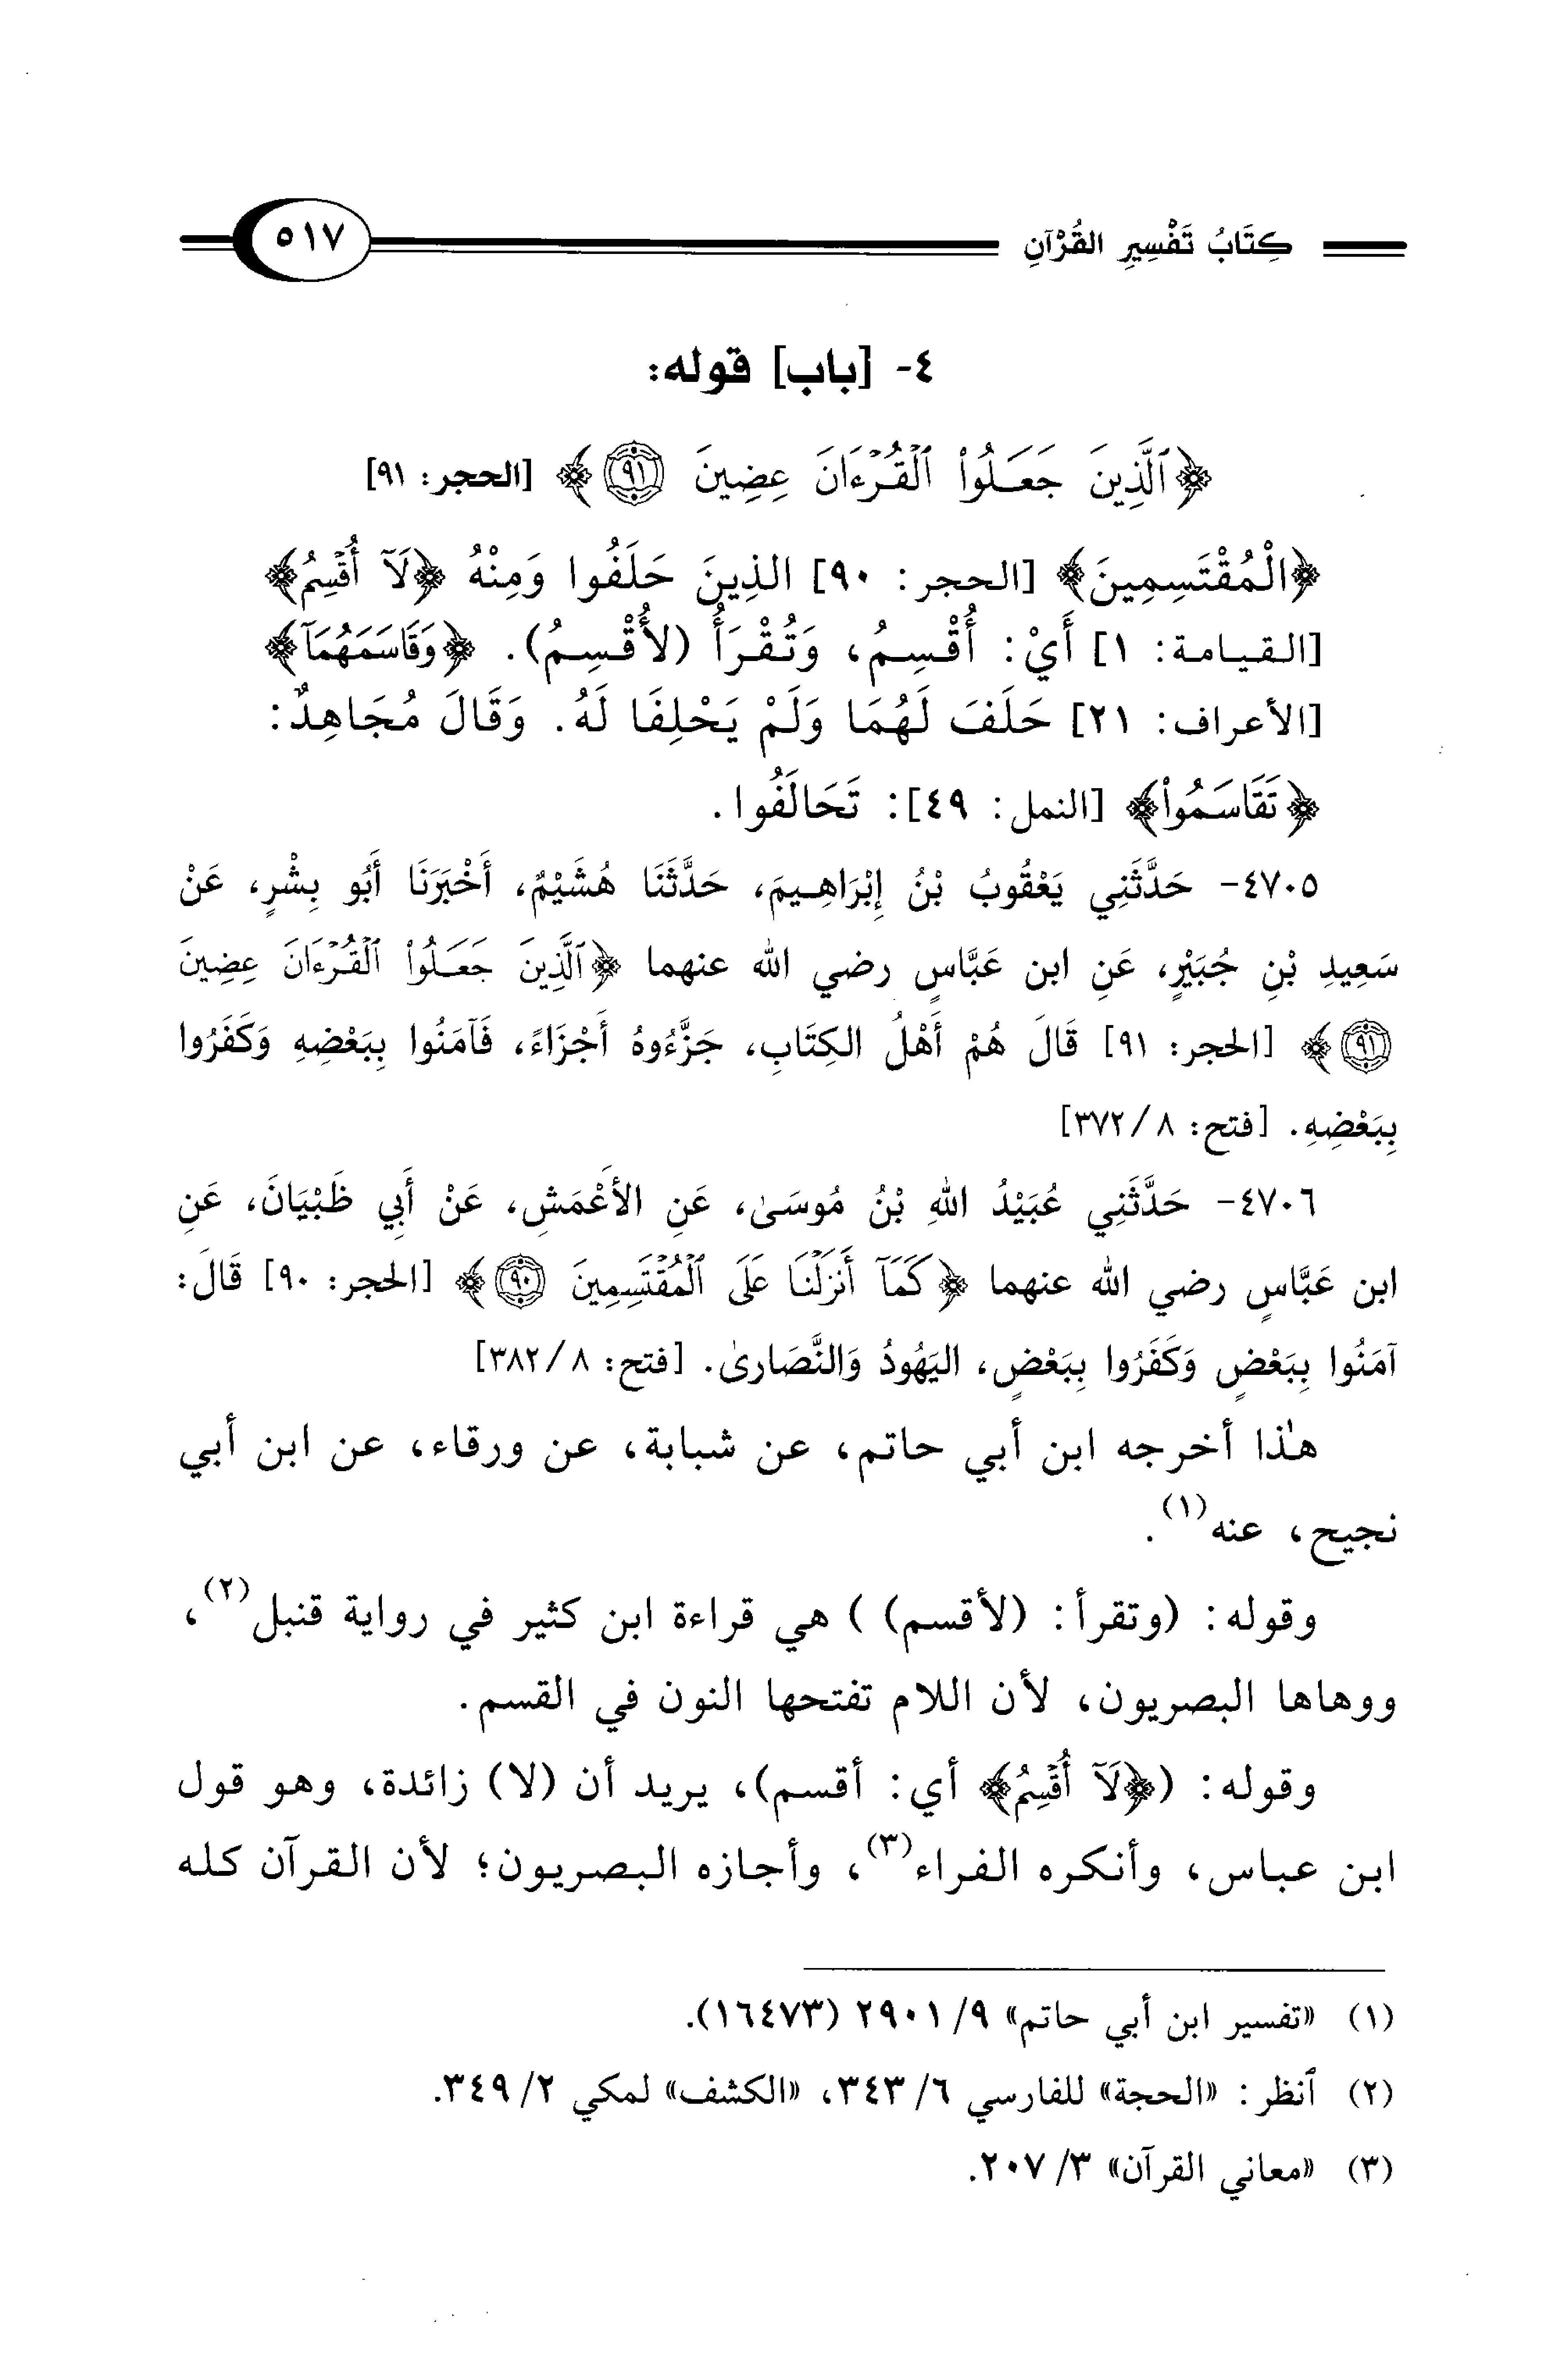 كِتَابُ تَفْسِيرِ القُرْآنِ ٥١٧
٤- [باب] قوله:
﴿ٱلَّذِينَ جَعَلُوا۟ ٱلْقُرْءَانَ عِضِينَ ٩١﴾ [الحجر: ٩١]
﴿الْمُقْتَسِمِينَ﴾ [الحجر: ٩٠] الذِينَ حَلَفُوا وَمِنْهُ ﴿لَآ أُقْسِمُ﴾
[القيامة: ١] أَيْ: أُقْسِمُ، وَتُقْرَأُ (لأُقْسِمُ). ﴿وَقَاسَمَهُمَآ﴾
[الأعراف: ٢١] حَلَفَ لَهُمَا وَلَمْ يَحْلِفَا لَهُ. وَقَالَ مُجَاهِدٌ:
﴿تَقَاسَمُوا۟﴾ [النمل: ٤٩]: تَحَالَفُوا.
٤٧٠٥- حَدَّثَنِي يَعْقُوبُ بْنُ إِبْرَاهِيمَ، حَدَّثَنَا هُشَيْمٌ، أَخْبَرَنَا أَبُو بِشْرٍ، عَنْ
سَعِيدِ بْنِ جُبَيْرٍ، عَنِ ابن عَبَّاسٍ رضي الله عنهما ﴿ٱلَّذِينَ جَعَلُوا۟ ٱلْقُرْءَانَ عِضِينَ
٩١﴾ [الحجر: ٩١] قَالَ هُمْ أَهْلُ الكِتَابِ، جَزَّءُوهُ أَجْزَاءً، فَآمَنُوا بِبَعْضِهِ وَكَفَرُوا
بِبَعْضِهِ. [فتح: ٨/ ٣٧٢]
٤٧٠٦- حَدَّثَنِي عُبَيْدُ اللهِ بْنُ مُوسَىٰ، عَنِ الأَعْمَشِ، عَنْ أَبِي ظَبْيَانَ، عَنِ
ابن عَبَّاسٍ رضي الله عنهما ﴿كَمَآ أَنزَلْنَا عَلَى ٱلْمُقْتَسِمِينَ ٩٠﴾ [الحجر: ٩٠] قَالَ:
آمَنُوا بِبَعْضٍ وَكَفَرُوا بِبَعْضٍ، اليَهُودُ وَالنَّصَارىٰ. [فتح: ٨/ ٣٨٢]
هٰذا أخرجه ابن أبي حاتم، عن شبابة، عن ورقاء، عن ابن أبي
نجيح، عنه(١).
وقوله: (وتقرأ: (لأقسم) ) هي قراءة ابن كثير في رواية قنبل(٢)،
ووهاها البصريون، لأن اللام تفتحها النون في القسم.
وقوله: (﴿لَآ أُقْسِمُ﴾ أي: أقسم)، يريد أن (لا) زائدة، وهو قول
ابن عباس، وأنكره الفراء(٣)، وأجازه البصريون؛ لأن القرآن كله
(١) «تفسير ابن أبي حاتم» ٩/ ٢٩٠١ (١٦٤٧٣).
(٢) ٱنظر: «الحجة» للفارسي ٦/ ٣٤٣، «الكشف» لمكي ٢/ ٣٤٩.
(٣) «معاني القرآن» ٣/ ٢٠٧.